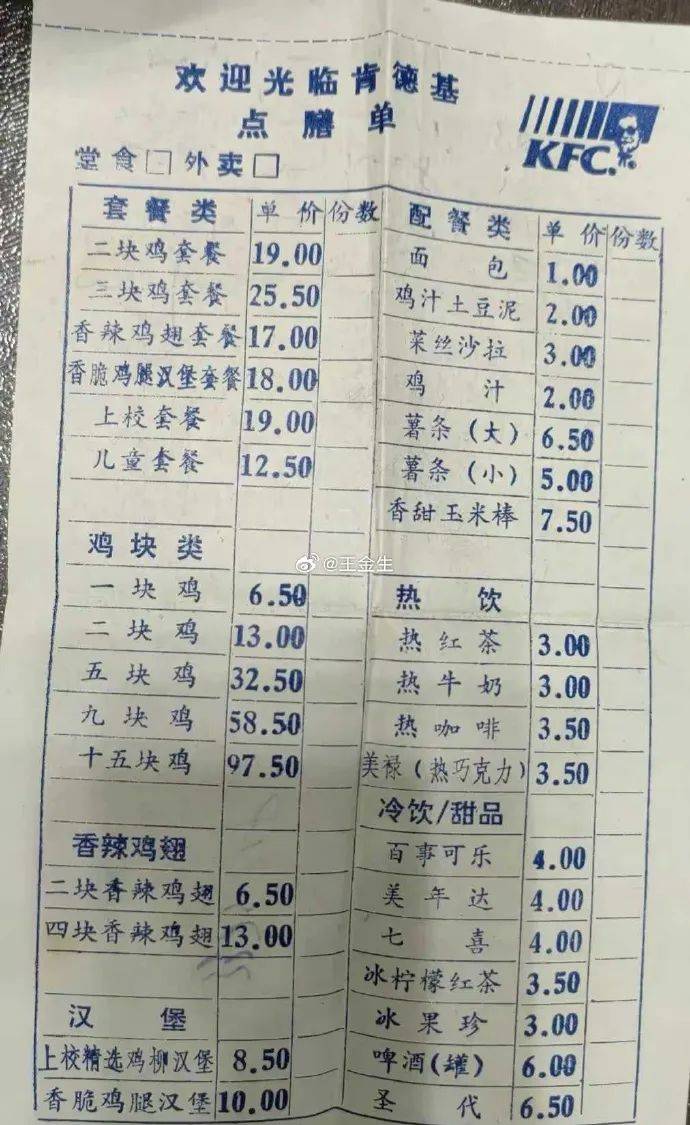 欢迎光临肯德基
点膳单
KFC.
堂食□ 外卖□
套餐类 单价 份数
二块鸡套餐 19.00
三块鸡套餐 25.50
香辣鸡翅套餐 17.00
香脆鸡腿汉堡套餐 18.00
上校套餐 19.00
儿童套餐 12.50
鸡块类
一块鸡 6.50
二块鸡 13.00
五块鸡 32.50
九块鸡 58.50
十五块鸡 97.50
香辣鸡翅
二块香辣鸡翅 6.50
四块香辣鸡翅 13.00
汉堡
上校精选鸡柳汉堡 8.50
香脆鸡腿汉堡 10.00
配餐类 单价 份数
面包 1.00
鸡汁土豆泥 2.00
菜丝沙拉 3.00
鸡汁 2.00
薯条(大) 6.50
薯条(小) 5.00
香甜玉米棒 7.50
热饮
热红茶 3.00
热牛奶 3.00
热咖啡 3.50
美禄(热巧克力) 3.50
冷饮/甜品
百事可乐 4.00
美年达 4.00
七喜 4.00
冰柠檬红茶 3.50
冰果珍 3.00
啤酒(罐) 6.00
圣代 6.50
@王金生